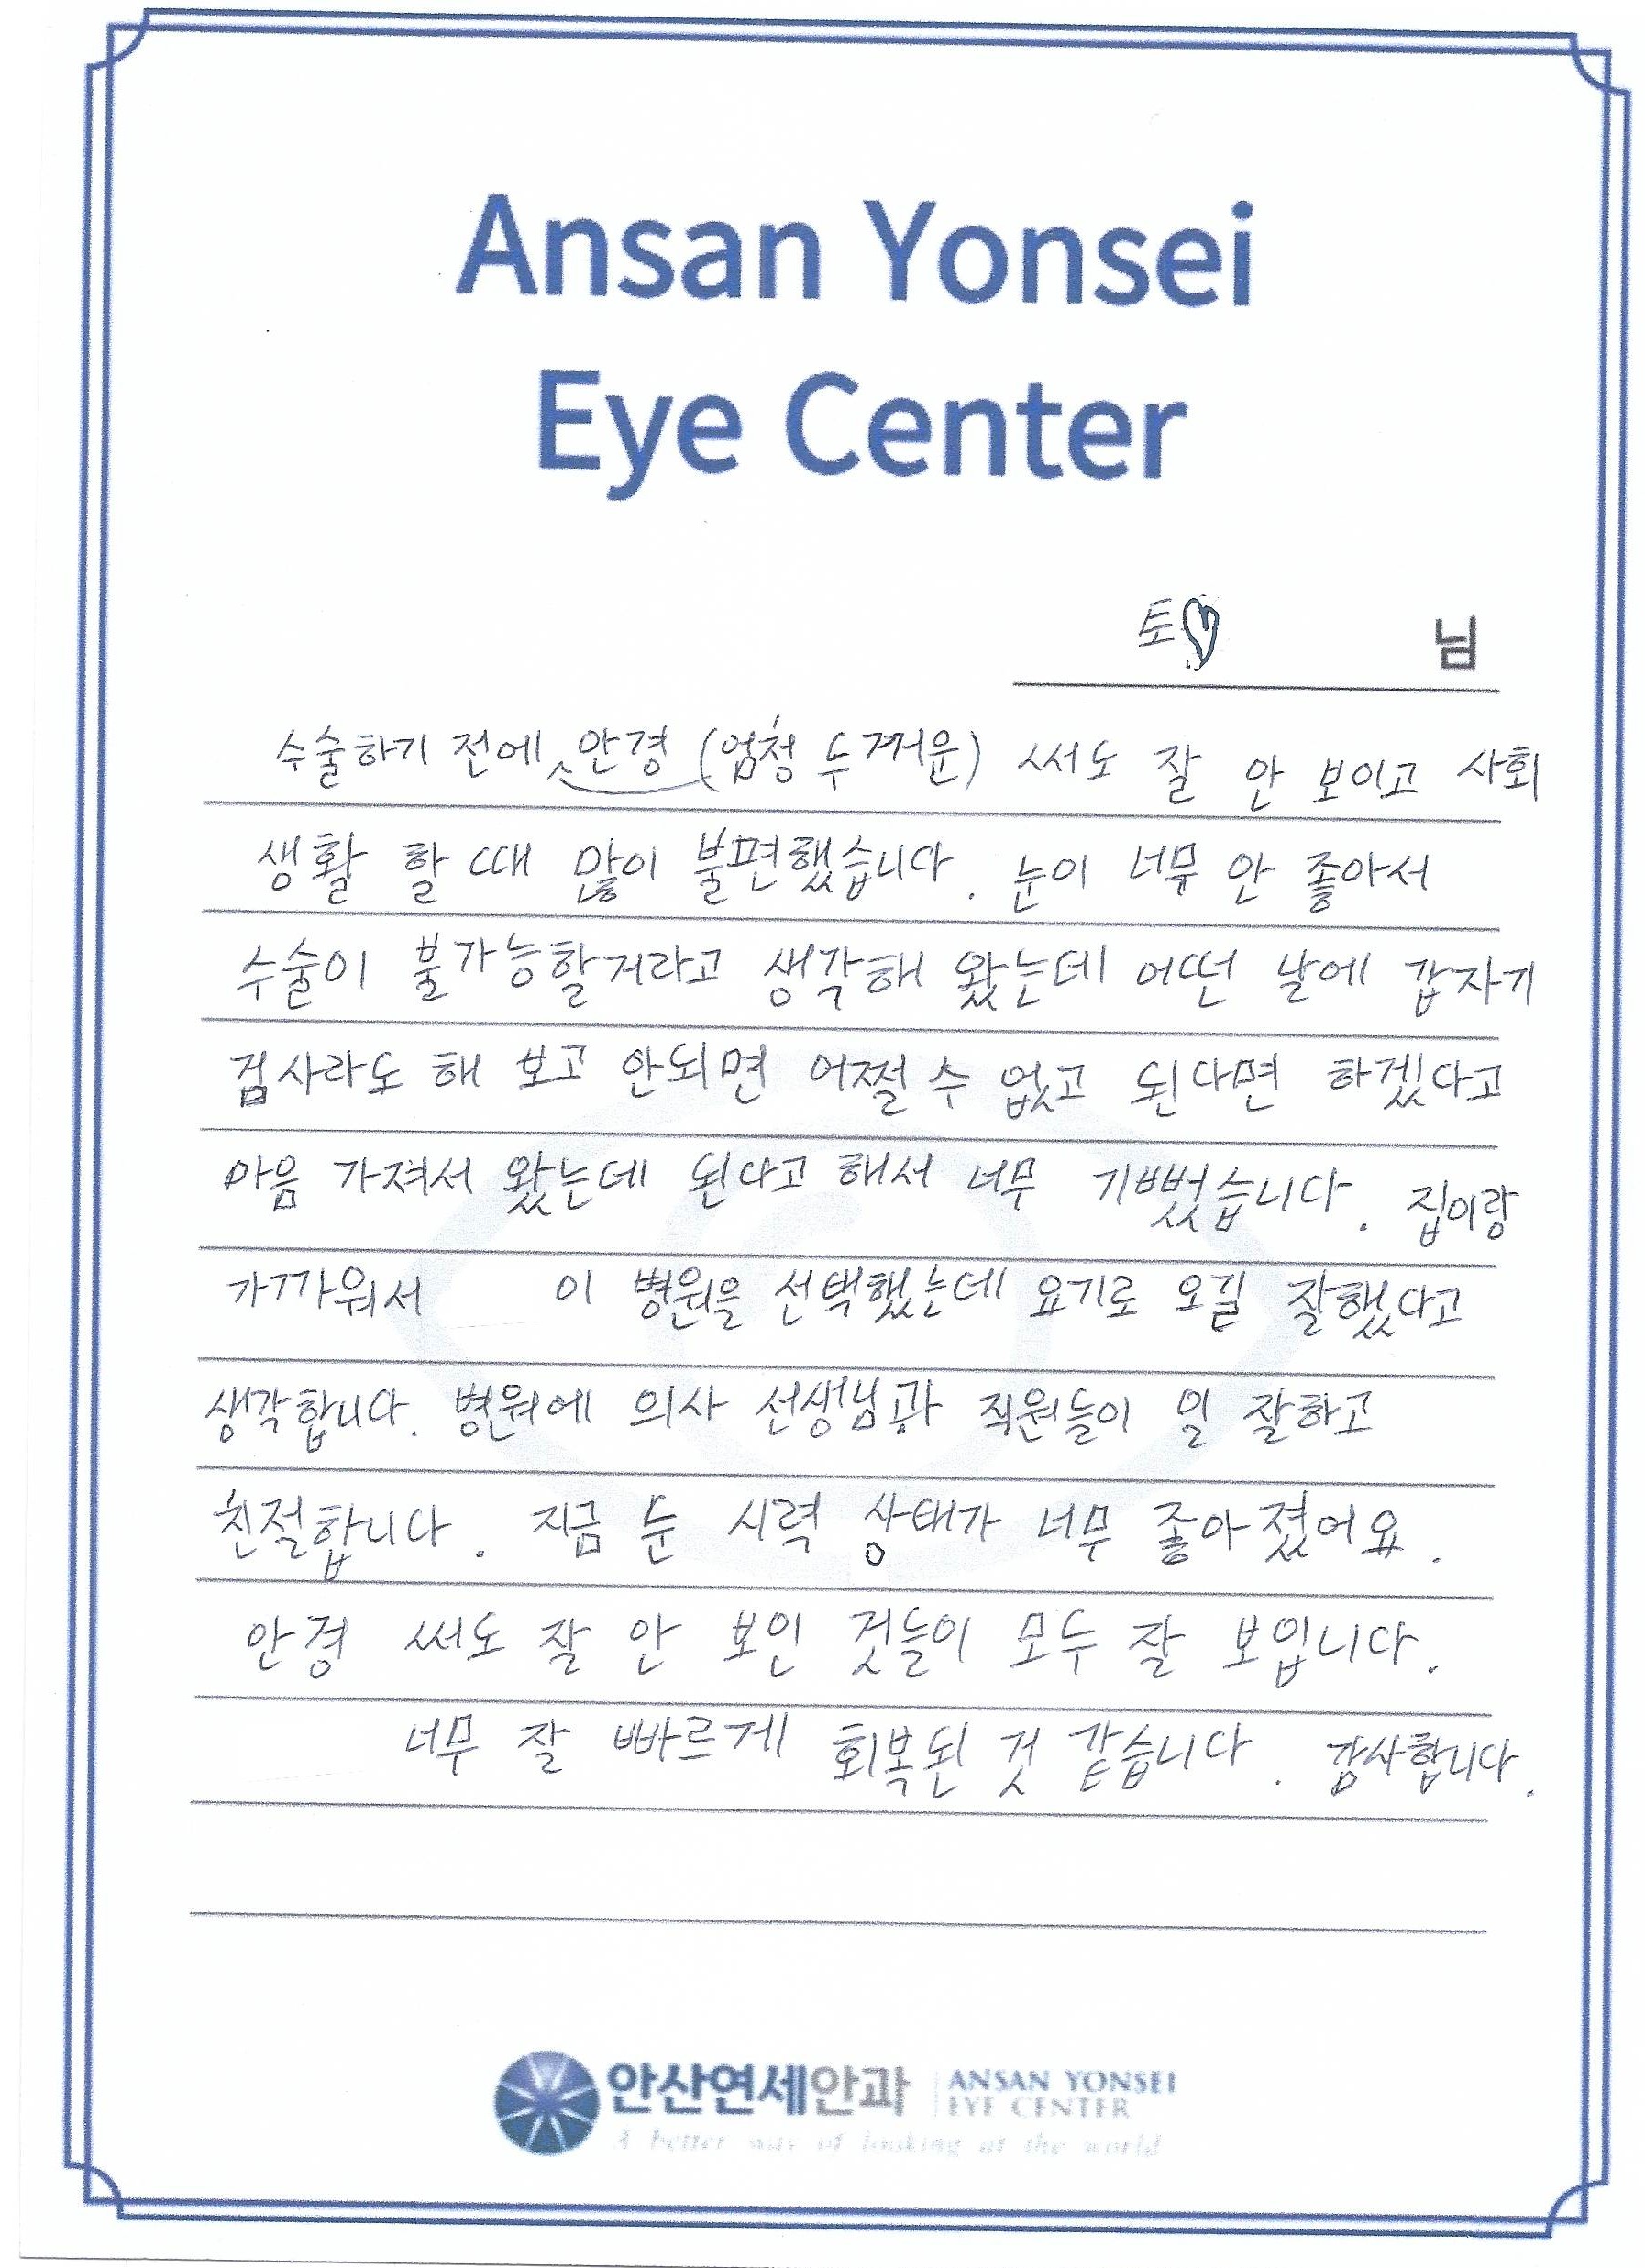 Ansan Yonsei
Eye Center
토♡ 님
수술하기 전에 안경 (엄청 두꺼운) 써도 잘 안 보이고 사회
생활 할 때 많이 불편했습니다. 눈이 너무 안 좋아서
수술이 불가능할거라고 생각해 왔는데 어떤 날에 갑자기
검사라도 해 보고 안되면 어쩔 수 없고 된다면 하겠다고
마음 가져서 왔는데 된다고 해서 너무 기뻤습니다. 집이랑
가까워서 이 병원을 선택했는데 요기로 오길 잘했다고
생각합니다. 병원에 의사 선생님과 직원들이 일 잘하고
친절합니다. 지금 눈 시력 상태가 너무 좋아졌어요.
안경 써도 잘 안 보인 것들이 모두 잘 보입니다.
너무 잘 빠르게 회복된 것 같습니다. 감사합니다.
안산연세안과 ANSAN YONSEI
EYE CENTER
A better way of looking at the world